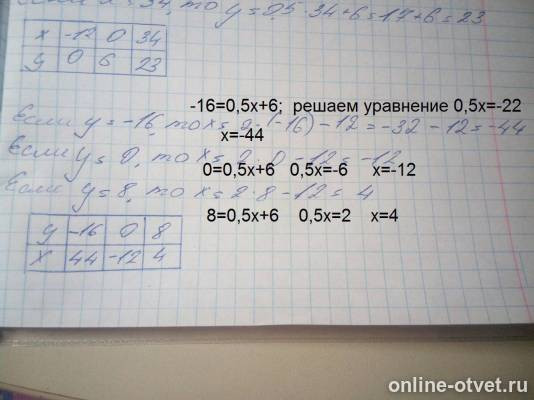 x = 34, то y = 0,5 · 34 + 6 = 17 + 6 = 23
x -12 0 34
y 0 6 23
-16=0,5x+6; решаем уравнение 0,5x=-22
Если y = -16, то x = 2 · (-16) - 12 = -32 - 12 = -44
x=-44
Если y = 0, то x = 2 · 0 - 12 = -12
0=0,5x+6 0,5x=-6 x=-12
Если y = 8, то x = 2 · 8 - 12 = 4
8=0,5x+6 0,5x=2 x=4
y -16 0 8
x 44 -12 4
online-otvet.ru